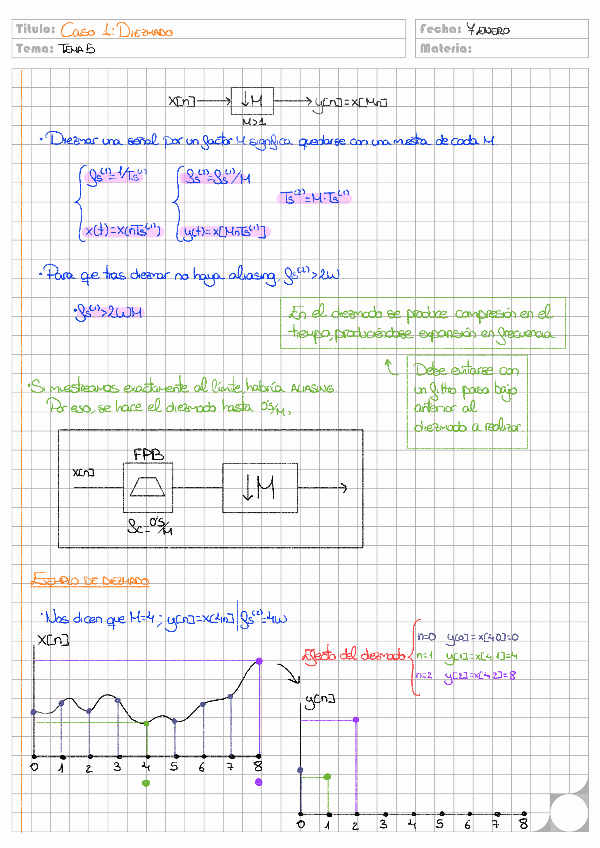 Título: Caso 1: Diezmado
Fecha: 4 enero
Tema: Tema 5
Materia:
x[n] ↓M y[n]=x[Mn]
M>1
· Diezmar una señal por un factor M significa quedarse con una muestra de cada M
fs⁽¹⁾=1/Ts⁽¹⁾ fs⁽²⁾=fs⁽¹⁾/M
Ts⁽²⁾=M·Ts⁽¹⁾
x(t)=x(nTs⁽¹⁾) y(t)=x[MnTs⁽¹⁾]
· Para que tras diezmar no haya aliasing, fs⁽²⁾>2W
· fs⁽¹⁾>2WM
En el diezmado se produce compresión en el
tiempo, produciéndose expansión en frecuencia
Debe evitarse con
un filtro paso bajo
anterior al
diezmado a realizar
· Si muestreamos exactamente al límite, habría ALIASING.
Por eso, se hace el diezmado hasta 0'5/M.
FPB
x[n]
↓M
fc=0'5/M
Ejemplo de diezmado
· Nos dicen que M=4; y[n]=x[4n] | fs⁽²⁾=4W
x[n]
Efecto del diezmado
n=0 y[0]=x[4·0]=0
n=1 y[1]=x[4·1]=4
n=2 y[2]=x[4·2]=8
y[n]
0 1 2 3 4 5 6 7 8
0 1 2 3 4 5 6 7 8